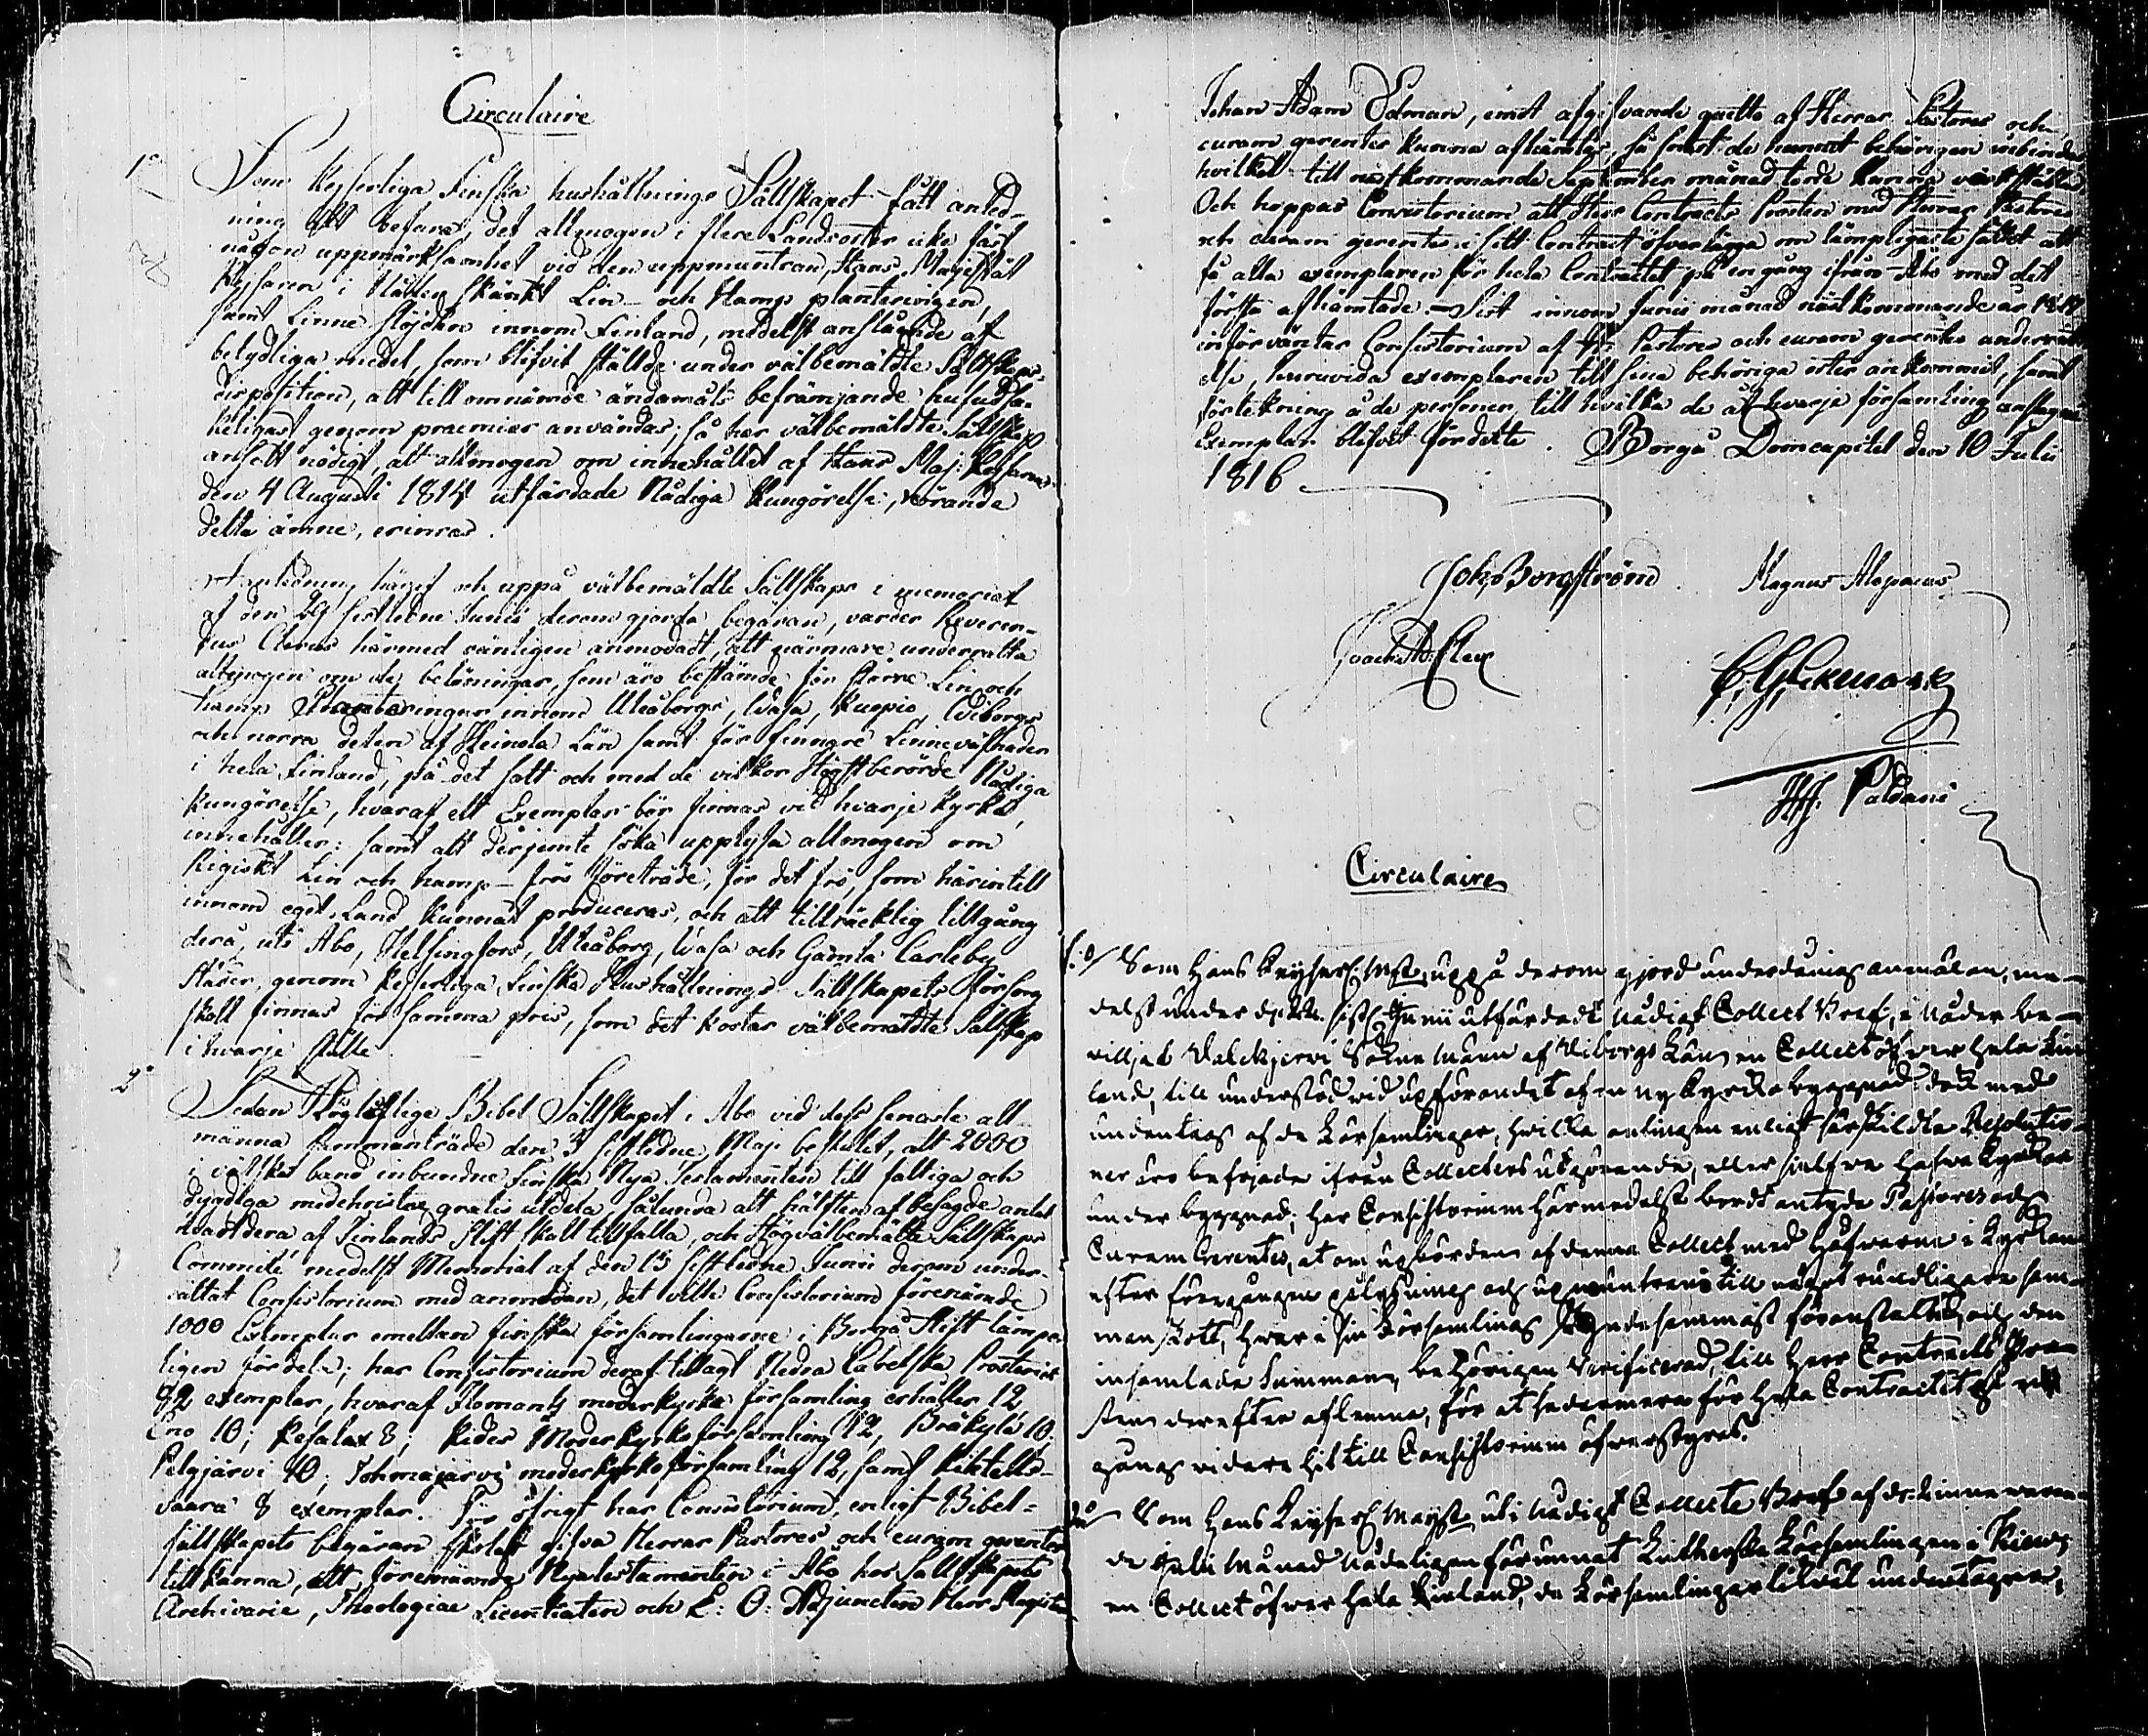 Circulaire
1o
Som Kejserliga Finska hushållnings Sällskapet fått anled-
ning att befara, det allmogen i flere Landsorter icke fäst
någon uppmärksamhet vid den uppmuntran, Hans Majestät
Kejsaren i Nåder skänkt Lin- och Hamp planteringen,
samt Linne slöjden innom Finland, medelst anslående af
betydliga medel, som blifvit ställde under välbemäldte Sällskaps
disposition, att till omnämde ändamåls befrämjande hufudsa-
keligast genom praemier användas; så har välbemäldte Sällskap
ansett nödigt, att allmogen om innehållet af Hans Maj: Kejsarens
den 4 Augusti 1814 utfärdade Nådiga Kungörelse, rörande
detta ämne, erinras.
I anledning häraf och uppå välbemäldte Sällskaps i memorial
af den 29 sistledne Junii derom gjorda begäran, varder Reveren-
dus Clerus härmed vänligen anmodadt, att närmare underrätta
allmogen om de belöningar, som äro bestämde för större Lin och
hamp Planteringar innom Uleåborgs, Wasa, Kuopio, Wiborgs
och norra delen af Heinola Län samt för finnare Linneväfnader
i hela Finland, på det sätt och med de vilkor Högstberörde Nådiga
Kungörelse, hvaraf ett Exemplar bör finnas vid hvarje Kyrka,
innehåller: samt att derjemte söka upplysa allmogen om
Rigiskt Lin och hamp-frös företräde, för det frö, som härintill
innom eget Land kunnat produceras, och att tillräcklig tillgång
derå, uti Åbo, Helsingfors, Uleåborg, Wasa och Gamla Carleby
Städer, genom Kejserliga Finska Hushållnings Sällskapets försorg
skall finnas för samma pris, som det kostar välbemäldte Sällskap
i hvarje ställe
2o
Sedan Höglofliga Bibel Sällskapet i Åbo vid dess senaste all-
männa sammanträde den 3 sistledne Maji beslutet, att 2000
i välska band inbundne Finska Nya Testamenten till fattiga och
dygdiga medchristne gratis utdela, sålunda att hälften af besagde antal
hvardera af Finlands Stift skall tillfalla, och Högvälbemälte Sällskaps
Committé medelst Memorial af den 15 sistledne Junii derom under-
rättat Consistorium med anmodan, det ville Consistorium förenämde
1000 Exemplar emellan finska församlingarne i Borgå Stift lämpe-
ligen fördela; har Consistorium deraf tillagt Nedra Carelska Prosteriet
82 exemplar, hvaraf Ilomants moderkyrko församling erhåller 12,
Eno 10; Kesalax 8; Kides Moderkyrkoförsamling 12, Bräkylä 10;
Pelgjärvi 10; Tohmajärvi moderkyrkoförsamling 12, samt Kiktelys-
vaara 8 exemplar. För öfrigt har Consistorium, enligt Bibel-
sällskapets begäran skolat gifva Herrar Pastores och curam gerentes
tillkänna, att förenämnda Nya testamenten i Åbo hos Sällskapets
Archivarie, Theologiae Licentiaten och E: O: Adjuncten Herr Magister
Johan Adam Edman, emot afgifvande quitto af Herrar Pastores och
curam gerentes kunna afhämtas, så snart de hunnit behörigen inbindas
hvilket till nästkommande September månad torde kunna verkställas
Och hoppas Consistorium att Herr Contracts Prosten med Herrar Pastores
och curam gerentes i sitt Contract öfverlägga om lämpligaste sättet att
få alla exemplaren för hela Contractet på en gång ifrån Åbo med det
första afhämtade. – Sist innom Junii månad nästkommande år 1817
införväntar Consistorium af Hrr Pastores och curam gerentes underrätt-
else, huruvida exemplaren till sina behöriga orter ankommit, samt
förtekning å de personer, till hvilka de åt hvarje församling anslagne
Exemplar blifvit fördelte. Borgå Domcapitel den 10 Julii
1816
Joh. Borgström Magnus Alopaeus
Joach. Ad. Cleve
Paldani
Circulaire
1:o/ Som Hans Keyserl: Mst uppå derom gjord underdånig anmälan, me-
delst under sistl. Junii utfärdadt Nådigt Collect Bref, i Nåder be-
villjat Valckjervi Sokne Männ af Viborgs Län, en Collect öfver hela Fin-
land, till understöd wid upförandet af en ny Kyrckobyggnad, dock med
undantag af de Församlingar, hwilka antingen enligt särskildte Resolutio-
ner äro befrijade ifrån Collecters utgörande, eller sjelfve hafva Kyrckor
under byggnad; har Consistorium härmedelst bordt antyda Pastores och
Curam Gerentes, at om upbörden af denna Collect med Håfvarne i Kyrkan
efter föregången pålysning och upmuntran till något rundligare sam-
manskott, hwar i sin Församling skyndesammast föranstalta, och den
insamlade Summan, behörigen Verificerad, till Herr Contracts Pro-
sten derefter aflemna, för at sedermera för hela Contractet på en
gång vidare hit till Consistorium öfverstyras.
2:o Som Hans Keyserl Mayst uti Nådigt Collecte Bref af d: innevaran-
de Julii Månad Nådeligen förunnat Lutherska Församlingen i Kiew
en Collect öfver hela Finland, de Församlingar likväl undantagne,